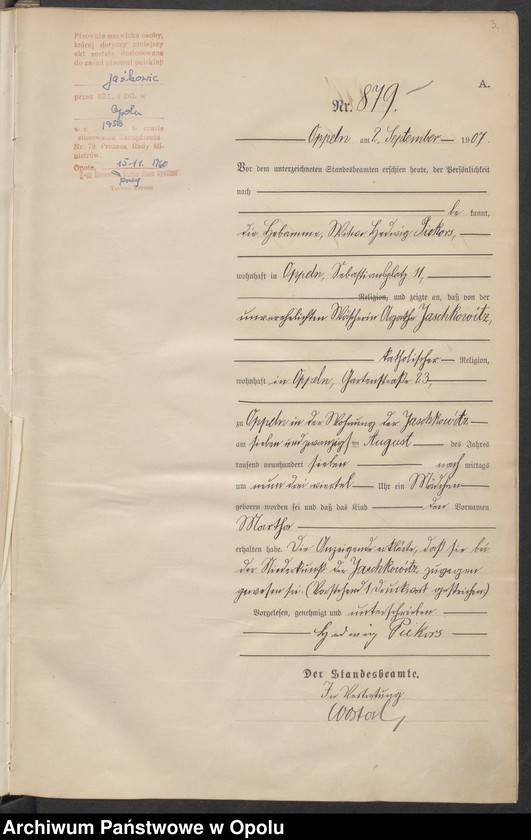 3.
Pisownia nazwiska osoby,
której dotyczy niniejszy
akt została dostosowana
do zasad pisowni polskiej
Jaśkowic
przez
Opolu
1950
Nr. 72 Prezesa Rady Mi-
nistrów.
Opole, 15.11. 1960
A.
Nr. 879.
Oppeln am 2. September 1907.
Vor dem unterzeichneten Standesbeamten erschien heute, der Persönlichkeit
nach
be kannt,
die Hebamme, Witwe Hedwig Piekors,
wohnhaft in Oppeln, Sebastiansplatz 11,
Religion, und zeigte an, daß von der
unverehelichten Wäscherin Agathe Jaschkowitz,
katholischer Religion,
wohnhaft in Oppeln, Gartenstraße 23,
zu Oppeln in der Wohnung der Jaschkowitz
am sieben und zwanzigsten August des Jahres
tausend neunhundert sieben nach mittags
um neun drei viertel Uhr ein Mädchen
geboren worden sei und daß das Kind den Vornamen
Martha
erhalten habe. Die Anzeigende erklärte, daß sie bei
der Niederkunft der Jaschkowitz zugegen
gewesen sei. (Vorstehend 1 Druckwort gestrichen)
Vorgelesen, genehmigt und unterschrieben
Hedwig Piekors
Der Standesbeamte.
In Vertretung
Wostal
Archiwum Państwowe w Opolu